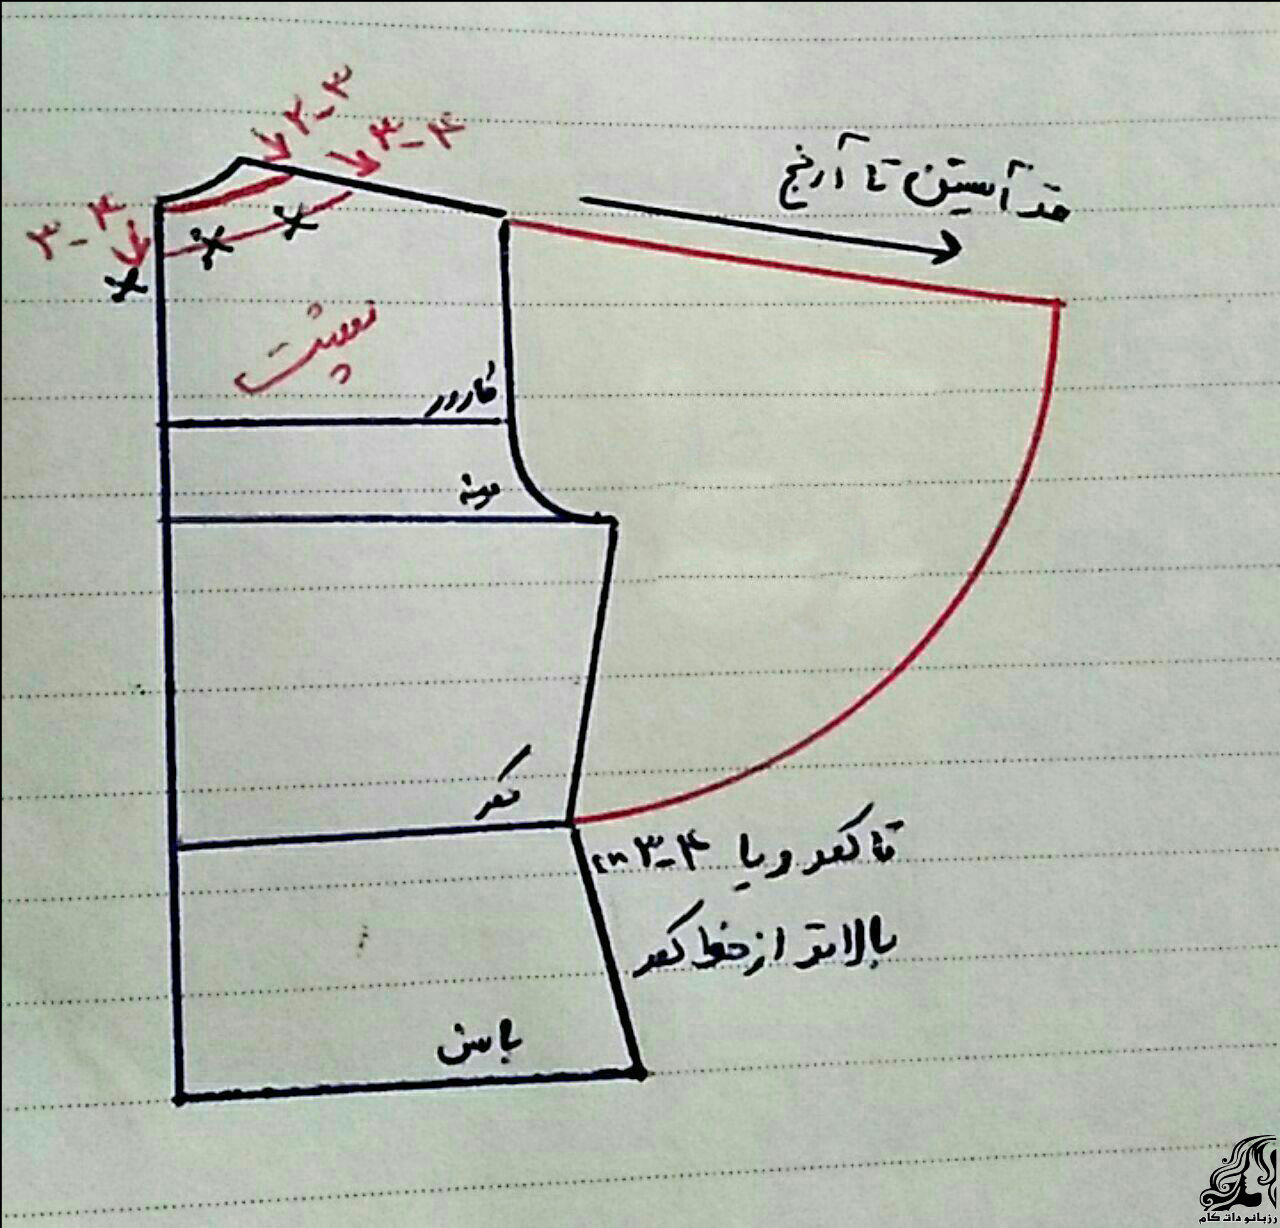 ۲-۳
۳-۴
۳-۴
قد آستین تا آرنج
پشت
کارور
سینه
کمر
تا کمر و یا ۳-۴ cm
بالاتر از خط کمر
باسن
رزبانو دات کام